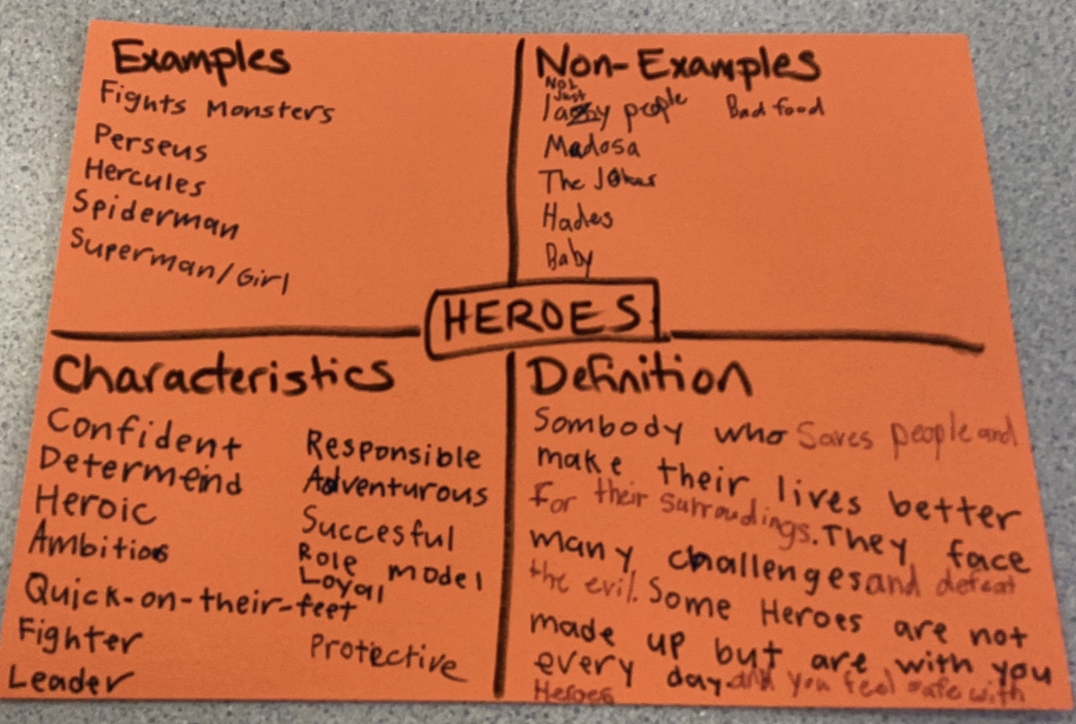 Examples
Fights Monsters
Perseus
Hercules
Spiderman
Superman/Girl
Non-Examples
Not
Just
lazy people Bad food
Madosa
The Joker
Hades
Baby
HEROES
Characteristics
Confident
Determeind
Heroic
Ambitios
Quick-on-their-feet
Fighter
Leader
Responsible
Adventurous
Succesful
Role model
Loyal
Protective
Definition
Sombody who Saves people and
make their lives better
For their surroudings. They face
many challenges and defeat
the evil. Some Heroes are not
made up but are with you
every day. and you feel safe with
Heroes